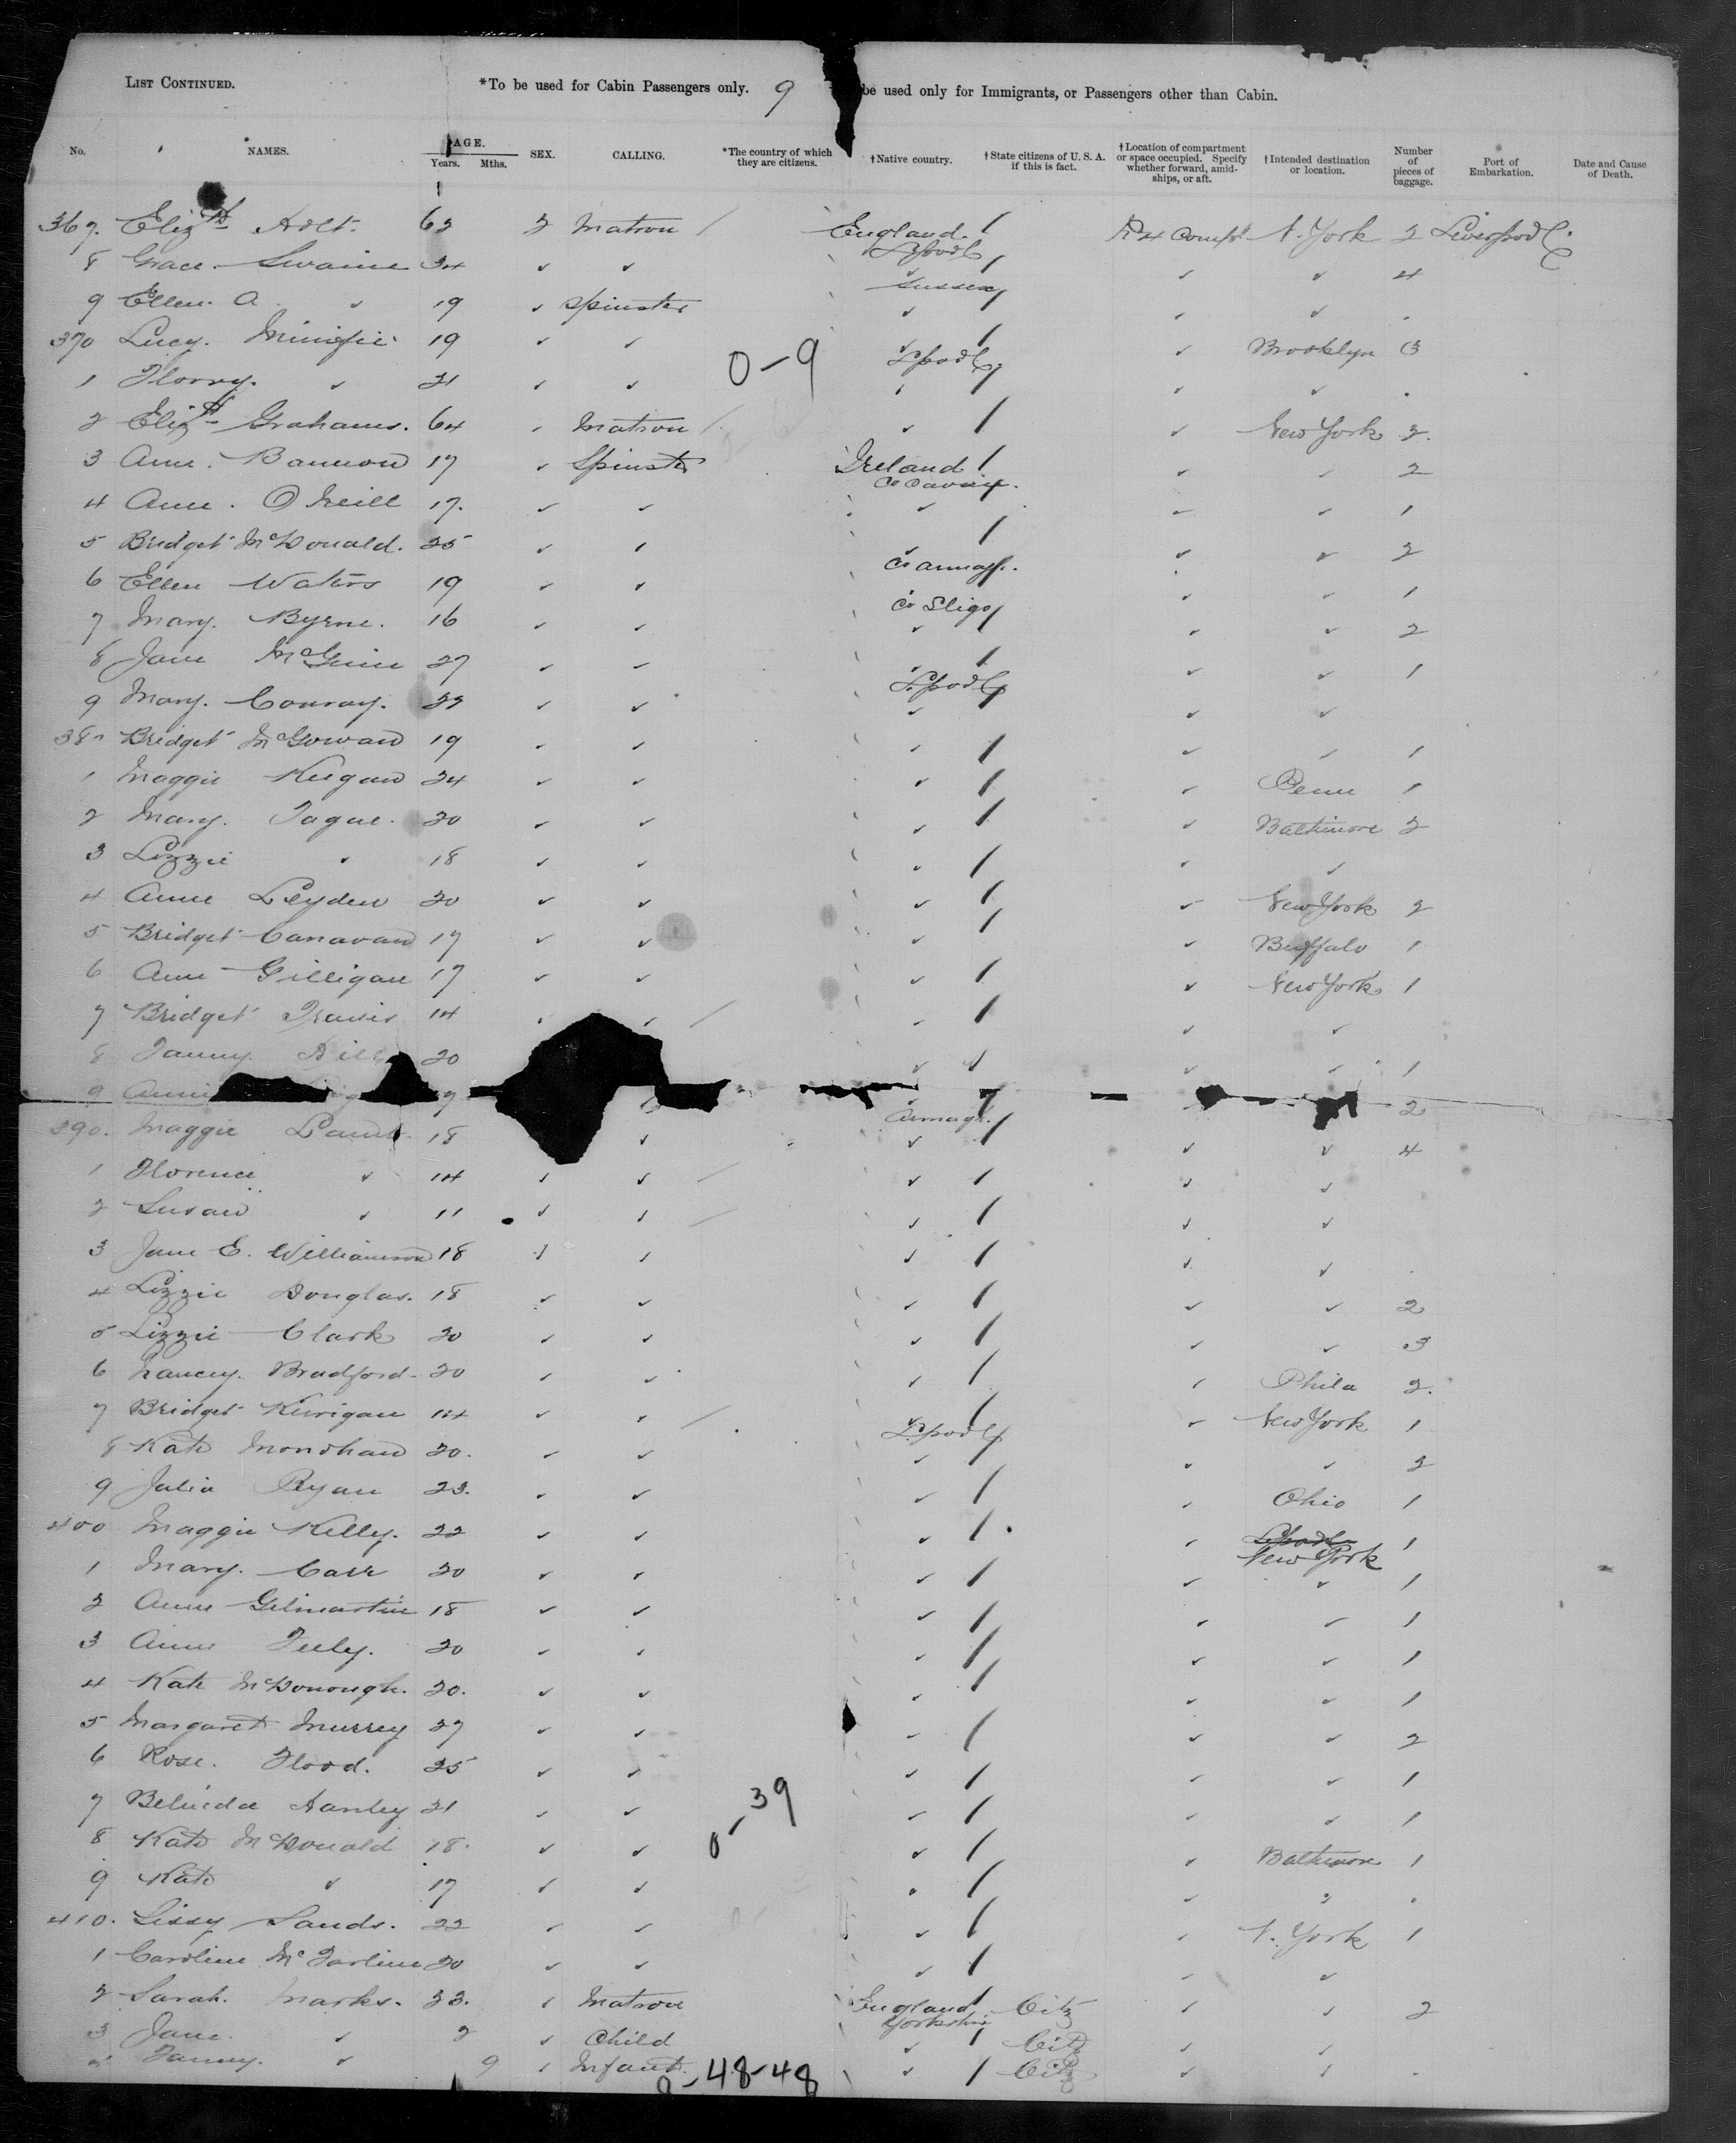 LIST CONTINUED. *To be used for Cabin Passengers only. 9 be used only for Immigrants, or Passengers other than Cabin.
No. NAMES. AGE. Years. Mths. SEX. CALLING. *The country of which they are citizens. †Native country. †State citizens of U. S. A. if this is fact. †Location of compartment or space occupied. Specify whether forward, amidships, or aft. †Intended destination or location. Number of pieces of baggage. Port of Embarkation. Date and Cause of Death.
367. Elizth Holt 62 Matron / England / N. York 2 Liverpool
L'pool
8 Grace Swaine 34 ✓ ✓ / ✓ ✓ 4
Sussex
9 Ellen A ✓ 19 ✓ Spinster ✓ ✓ ✓
370 Lucy. Minifie 19 ✓ ✓ ✓ / ✓ Brooklyn 3
0-9 L'pool
1 Florry. ✓ 21 ✓ ✓ ✓ ✓
2 Elizth Grahams. 64 ✓ Matron / ✓ / ✓ New York 2.
3 Anne. Bannon 17 ✓ Spinster Ireland / ✓ ✓ 2
Co Cavan
4 Anne. O Neill 17. ✓ ✓ ✓ ✓ ✓ 1
5 Bridget McDonald. 25 ✓ ✓ / ✓ ✓ 2
Co Armagh.
6 Ellen Waters 19 ✓ ✓ ✓ ✓ 1
Co Sligo
7 Mary. Byrne. 16 ✓ ✓ ✓ / ✓ ✓ 2
8 Jane McGuin 27 ✓ ✓ ✓ / ✓ ✓ 1
L'pool
9 Mary. Conray. 22 ✓ ✓ ✓ ✓ ✓
380 Bridget McGowan 19 ✓ ✓ ✓ / ✓ ✓ 1
1 Maggie Keegan 24 ✓ ✓ ✓ / ✓ Penn 1
2 Mary. Tague. 20 ✓ ✓ ✓ / ✓ Baltimore 2
3 Lizzie ✓ 18 ✓ ✓ ✓ / ✓ ✓
4 Anne Leyden 20 ✓ ✓ ✓ / ✓ New York 2
5 Bridget Canavan 17 ✓ ✓ ✓ / ✓ Buffalo 1
6 Anne Gilligan 17 ✓ ✓ ✓ / ✓ New York 1
7 Bridget Travis 14 ✓ / ✓ / ✓ ✓
8 Fanny. 20 ✓ ✓ ✓ ✓ 1
9 2
Armagh.
390. Maggie 18 ✓ ✓ / ✓ ✓ 4
1 Florence ✓ 14 ✓ ✓ / ✓ / ✓ ✓
2 Susan ✓ 11 ✓ ✓ / ✓ / ✓ ✓
3 Jane E. Williamson 18 ✓ ✓ ✓ / ✓ ✓
4 Lizzie Douglas. 18 ✓ ✓ ✓ / ✓ ✓ 2
5 Lizzie Clark 20 ✓ ✓ ✓ / ✓ ✓ 3
6 Nancy. Bradford 20 ✓ ✓ ✓ / ✓ Phila 2.
7 Bridget Kerrigan 14 ✓ ✓ / ✓ / ✓ New York 1
L'pool
8 Kate Monohan 20. ✓ ✓ ✓ ✓ ✓ 2
9 Julia Ryan 23. ✓ ✓ ✓ / ✓ Ohio 1
400 Maggie Kelly. 22 ✓ ✓ ✓ / ✓ 1
New York
1 Mary. Carr 20 ✓ ✓ ✓ / ✓ ✓ 1
2 Anne Gilmartin 18 ✓ ✓ ✓ / ✓ ✓ 1
3 Anne Feely. 20 ✓ ✓ ✓ / ✓ ✓ 1
4 Kate McDonough. 20. ✓ ✓ ✓ / ✓ ✓ 1
5 Margaret Murrey 27 ✓ ✓ ✓ / ✓ ✓ 2
6 Rose. Flood. 25 ✓ ✓ ✓ / ✓ ✓ 1
0-39
7 Belinda Hanley 21 ✓ ✓ ✓ / ✓ ✓ 1
8 Kate McDonald 18. ✓ ✓ ✓ / ✓ Baltimore 1
9 Kate ✓ 17 ✓ ✓ ✓ / ✓ ✓
410. Lissy Sands. 22 ✓ ✓ ✓ / ✓ N. York 1
1 Caroline McFarline 20 ✓ ✓ ✓ / ✓ ✓
2 Sarah. Marks. 33. ✓ Matron England / Citz ✓ ✓ 2
Yorkshire
3 Jane. ✓ 2 ✓ Child ✓ / Citz ✓ ✓
4 Fanny. ✓ 9 ✓ Infant. ✓ / Citz ✓ ✓
0-48-48